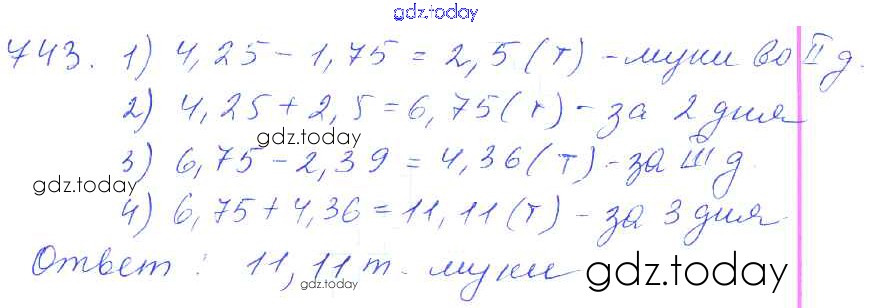 gdz.today
743. 1) 4,25 - 1,75 = 2,5 (т) - муки во II д.
2) 4,25 + 2,5 = 6,75 (т) - за 2 дня
gdz.today
3) 6,75 - 2,39 = 4,36 (т) - за III д.
gdz.today
4) 6,75 + 4,36 = 11,11 (т) - за 3 дня
Ответ: 11,11 т. муки
gdz.today
gdz.today